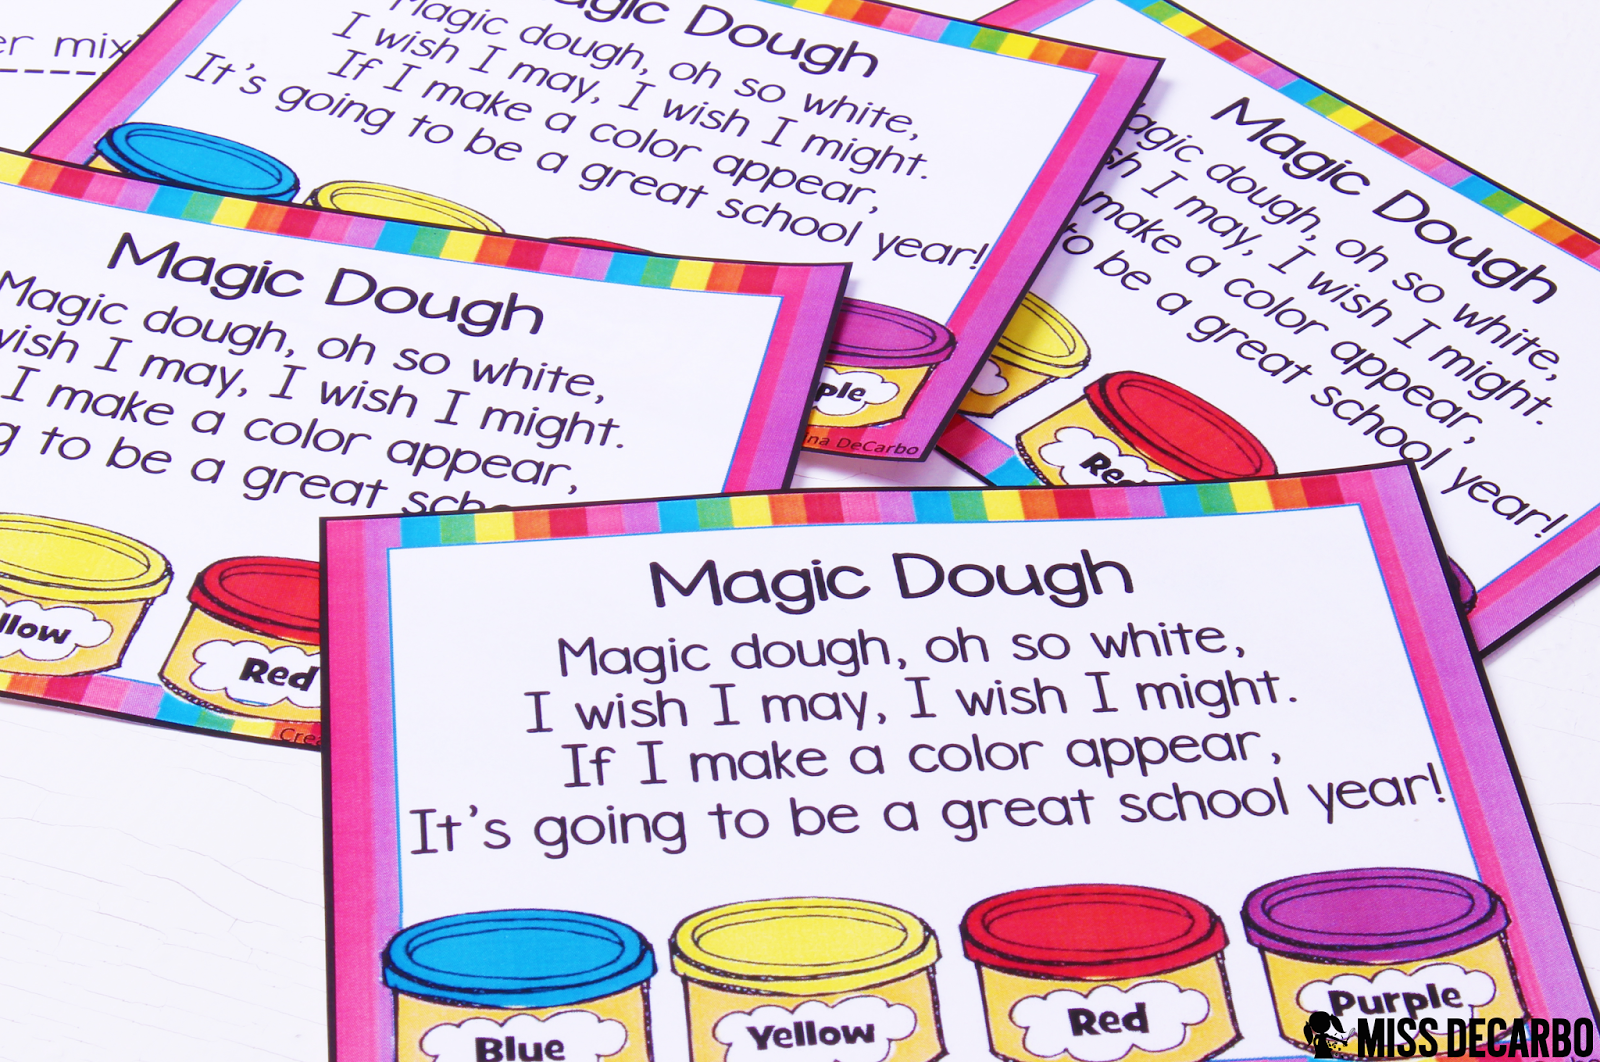 er mix
Magic Dough
Magic dough, oh so white,
I wish I may, I wish I might.
If I make a color appear,
It's going to be a great school year!
ple
ina DeCarbo
Magic Dough
agic dough, oh so white,
sh I may, I wish I might.
make a color appear,
to be a great school year!
Red
Magic Dough
Magic dough, oh so white,
wish I may, I wish I might.
I make a color appear,
g to be a great sch
llow
Red
Crea
Magic Dough
Magic dough, oh so white,
I wish I may, I wish I might.
If I make a color appear,
It's going to be a great school year!
Blue
Yellow
Red
Purple
MISS DECARBO